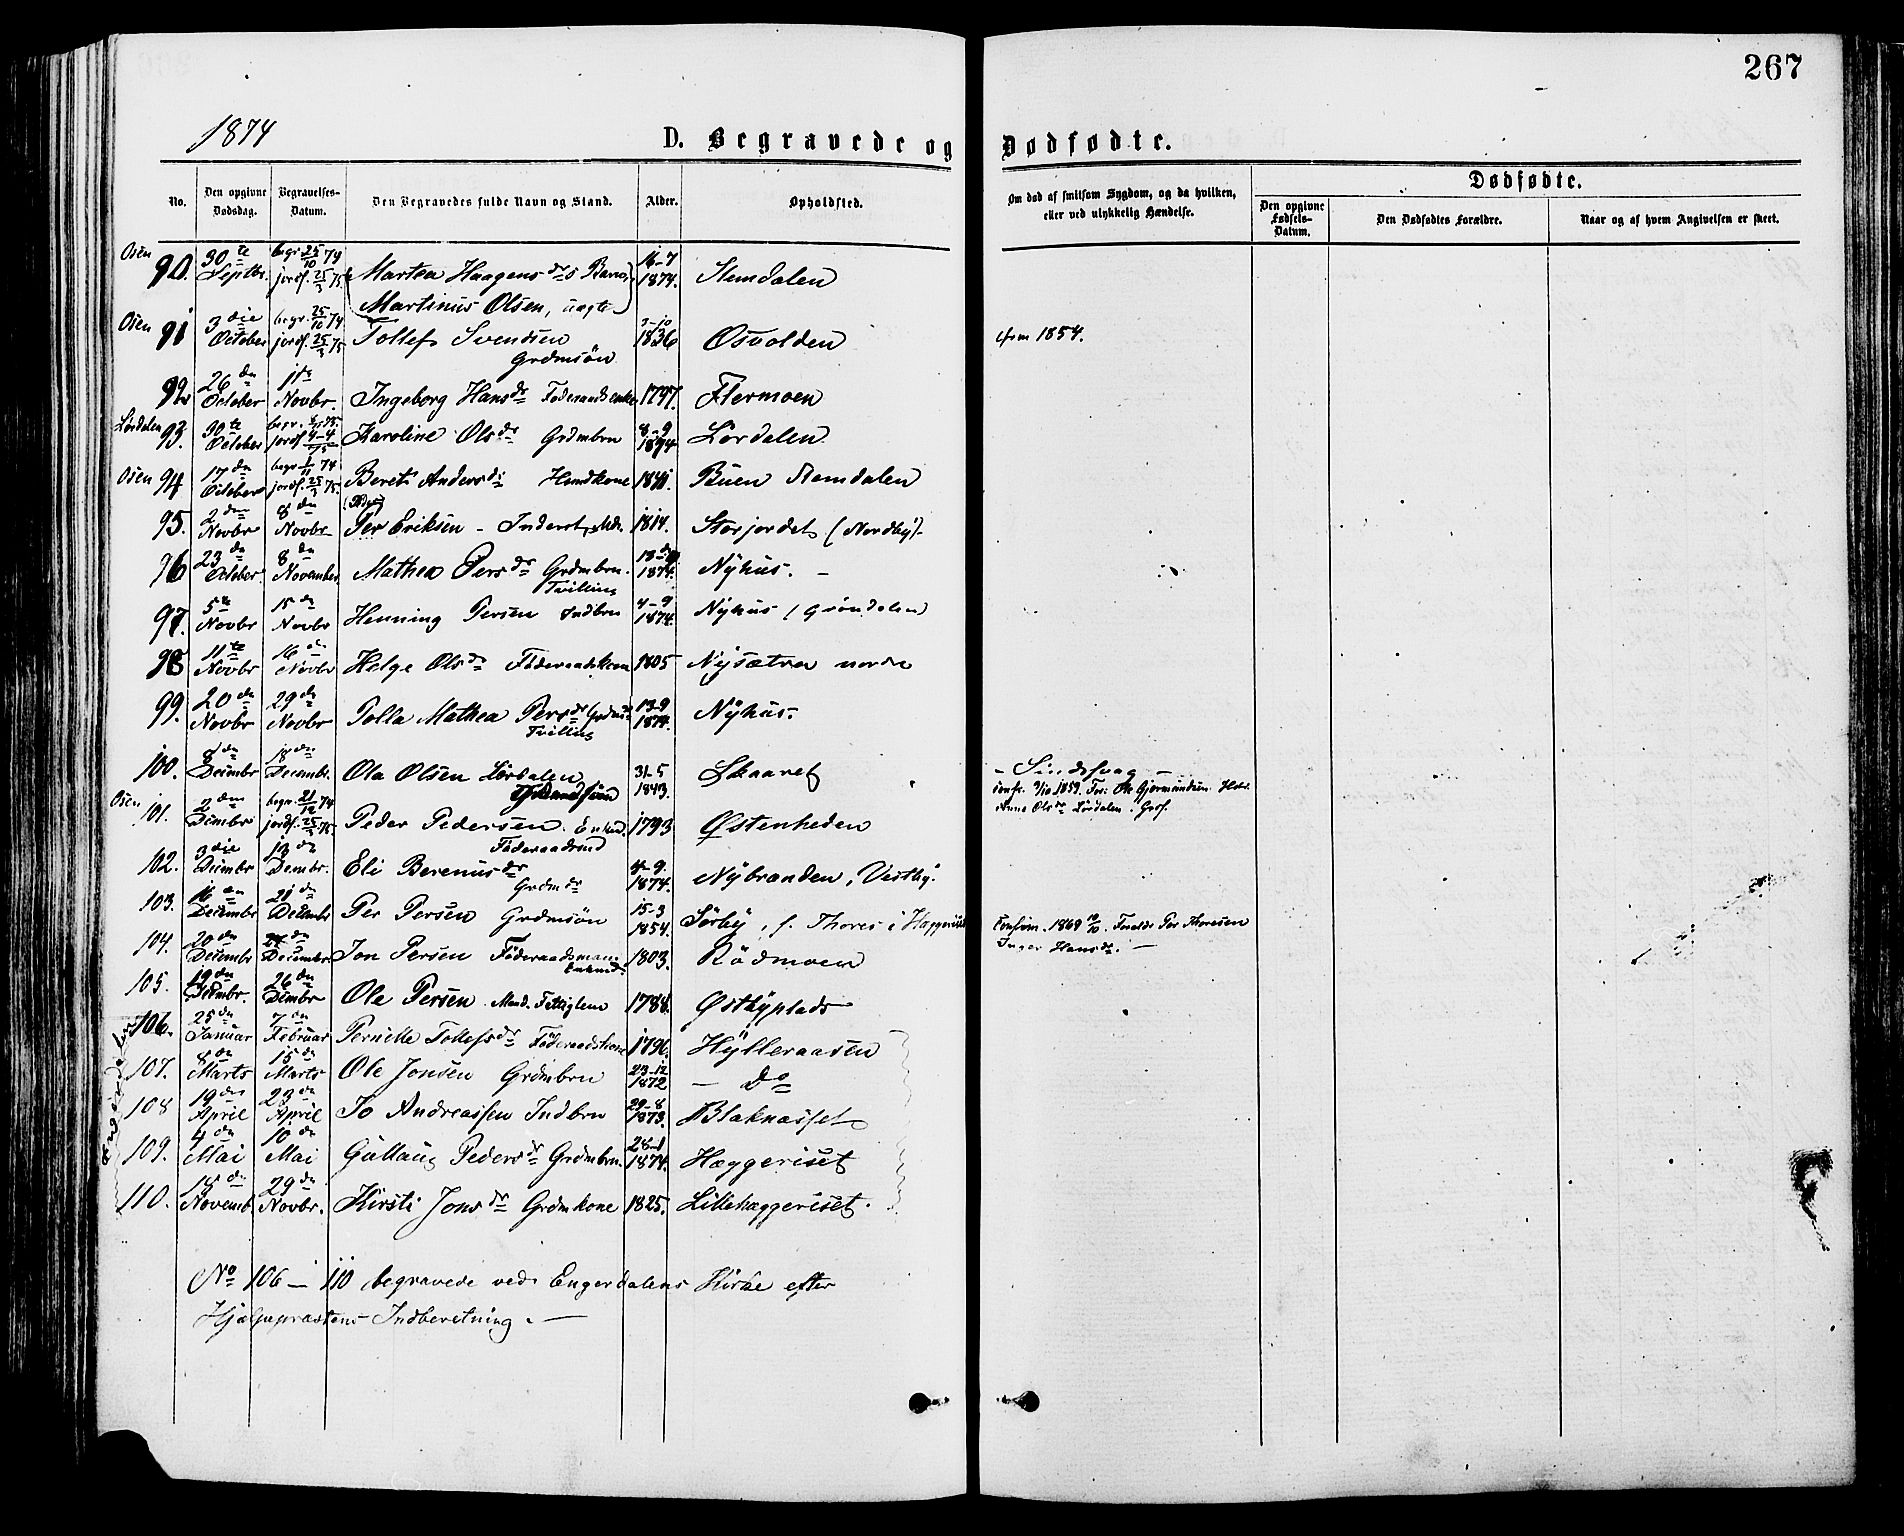 267
1874
D. Begravede og Dødfødte.
No.
Den opgivne Dødsdag.
Begravelses-Datum.
Den Begravedes fulde Navn og Stand.
Alder.
Opholdsted.
Om død af smitsom Sygdom, og da hvilken, eller ved ulykkelig Hændelse.
Dødfødte.
Den opgivne Fødsels-Datum.
Den Dødfødtes Forældre.
Naar og af hvem Angivelsen er skeet.
Osen 90. 30te Septbr. begr. 25/10 74 jordf. 25/3 75. Martea Haagensdrs Barn 16-7 1874. Nemdalen
Martinus Olsen, uægte
Osen 91 3die October begr. 25/10 74 jordf. 25/3 75 Tollef Svendsen Grdmsön 3-10 1836 Osvolden
92 26de October 1ste Novbr. Ingeborg Hansdr Föderaadsenke 1797. Flermoen
Lördalen 93. 30te October begr. jordf. Karoline Olsdr Grdmbrn 8-9 1874 Lördalen
Osen 94 17de October begr. 1/11 74 jordf. 25/3 75. Beret Andersdr Huusdkone 1840. Buen Nemdalen
95. 2den Novbr 8de Novbr Per Eriksen - Inderst, 1814. Storjordet (Nordby)-
96 23de October 8de November. Mathea Persdr Grdmbrn. Tvilling 1874. Nyhus. -
97. 5te Novbr 15de Novbr Henning Persen Indbrn 4-9 1874. Nyhus (Gröndalen)
98 11te Novbr 16de Novbr Helge Olsdr Föderaadskone 1805 Nysætra nordre
99. 20de Novbr 29de Novbr Polla Mathea Persdr Tvilling 13-9 1874. Nyhus.
100. 8de Decembr 18de Decembr. Ola Olsen Lördalen 31-5 1843. Skaaret
- Sindssvag -
Anna Olsdr Lördalen. Grdf.
Osen 101. 2den Dcmbr begr. 21/12 74 jordf. 25/3 75. Peder Pedersen. Enkem. Föderaadsmd 1793 Østenheden
102. 3die Decmbr 13de Dcembr. Eli Berenusdr Grdmdr 4-9. 1874. Nybranden, Vestby.
103. 16de Decembr 21de Decembr Per Persen Grdmsön 15-3 1854. Sörby, f. Thores i Haggeriset
Confirm. 1869 Foreldr Per Thoresen
Inger Hansdr. -
104. 20de Decembr Decembr Jon Persen Föderaadsmand Enkemd. 1803. Rödmoen
105. 19de Decmbr. 26de Dcmbr Ole Persen Fattiglem 1788. Østbyplads
106. 25de Januar 7de Februar Pernille Tollefsdr Föderaadskone 1796. Hylleraasen
107. 8de Marts 15de Marts Ole Jonsen Grdmbrn 23-12 1872 - Do
108 19de April 23de April Jo Andreassen Indbrn 29-8 1873. Blaknasset
109. 4de Mai 10de Mai Gullaug Pedersdr Grdmbrn. 28-1 1874. Hæggeriset
110. Novemb 29de Novbr. Kirsti Jonsdr Grdmkone 1825. Lillehæggeriset.
No 106 - 110 begravede ved Engerdalens Kirke efter
Hjælpepræstens Indberetning. -